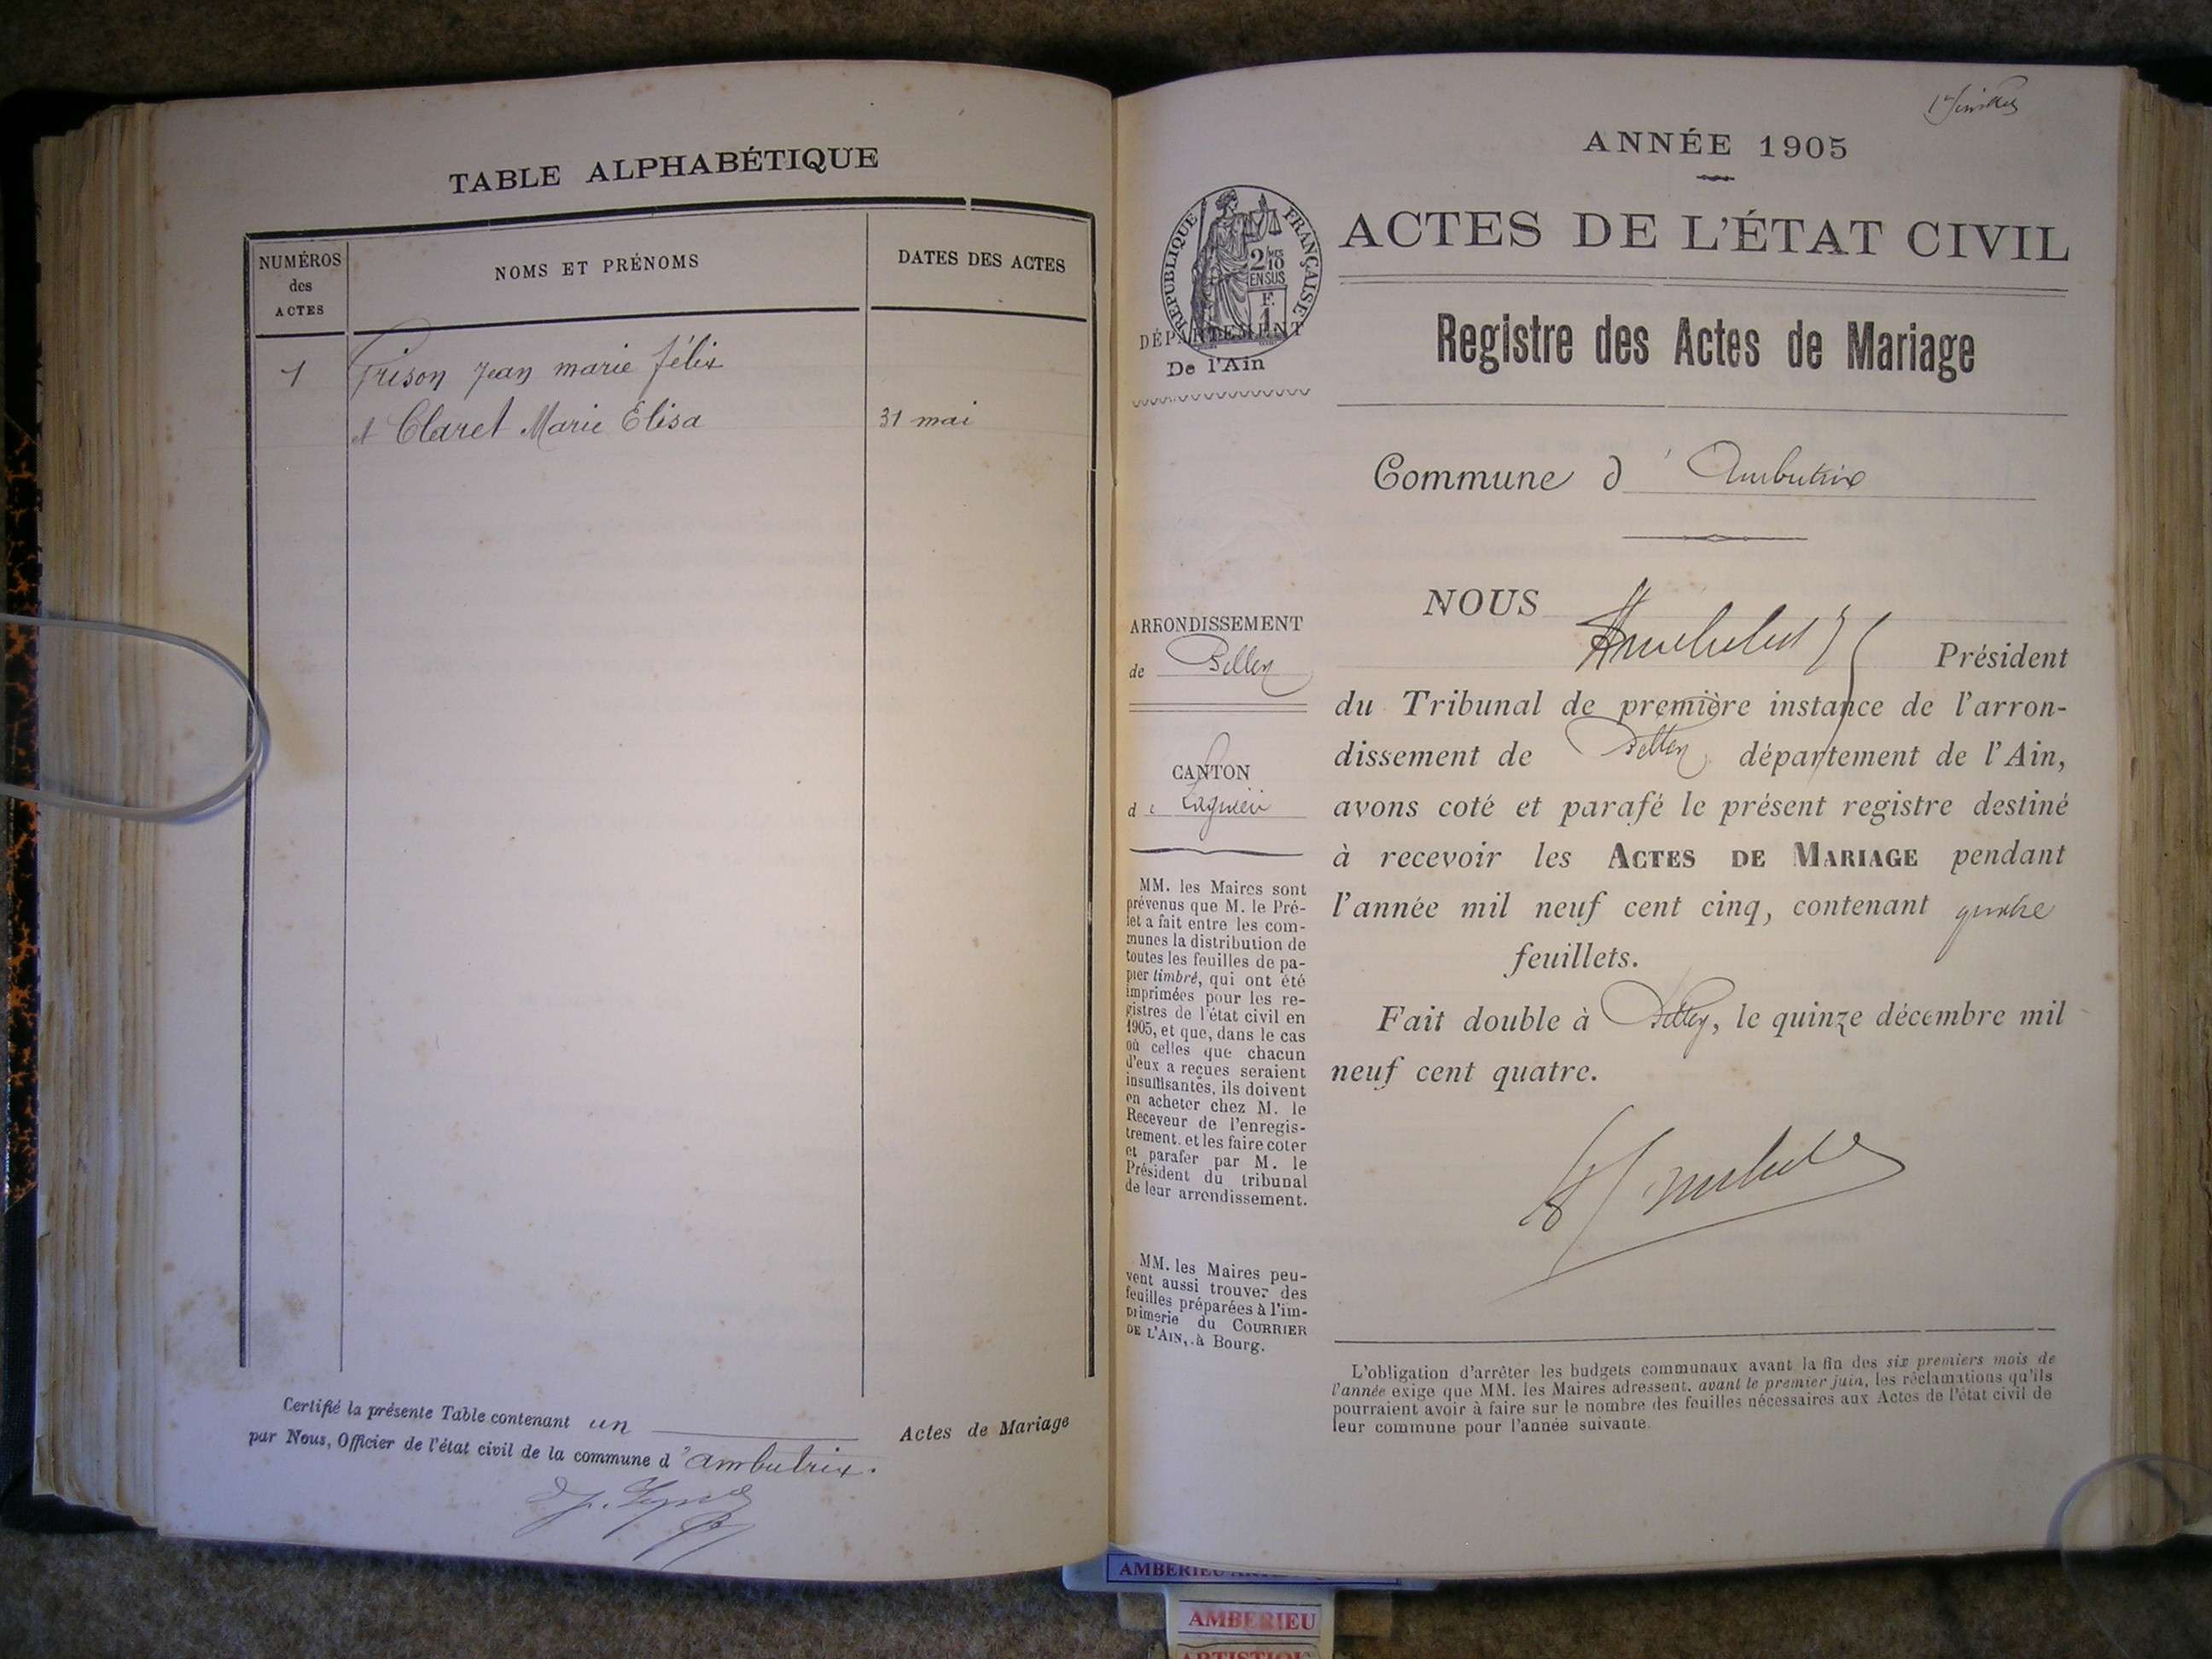 TABLE ALPHABÉTIQUE
NUMÉROS
des
ACTES
NOMS ET PRÉNOMS
DATES DES ACTES
1 Prison Jean marie félix
et Claret Marie Elisa 31 mai
Certifié la présente Table contenant un Actes de Mariage
par Nous, Officier de l'état civil de la commune d'ambutrix.
ANNÉE 1905
RÉPUBLIQUE FRANÇAISE
2/10
EN SUS
F.
1
DÉPARTEMENT
De l'Ain
ACTES DE L'ÉTAT CIVIL
Registre des Actes de Mariage
Commune d'Ambutrix
ARRONDISSEMENT
de Belley
CANTON
de Lagnieu
MM. les Maires sont
prévenus que M. le Pré-
fet a fait entre les com-
munes la distribution de
toutes les feuilles de pa-
pier timbré, qui ont été
imprimées pour les re-
gistres de l'état civil en
1905, et que, dans le cas
où celles que chacun
d'eux a reçues seraient
insuffisantes, ils doivent
en acheter chez M. le
Receveur de l'enregis-
trement. et les faire coter
et parafer par M. le
Président du tribunal
de leur arrondissement.
MM. les Maires peu-
vent aussi trouver des
feuilles préparées à l'im-
primerie du COURRIER
DE L'AIN, à Bourg.
NOUS
Président
du Tribunal de première instance de l'arron-
dissement de Belley département de l'Ain,
avons coté et parafé le présent registre destiné
à recevoir les ACTES DE MARIAGE pendant
l'année mil neuf cent cinq, contenant quatre
feuillets.
Fait double à Belley, le quinze décembre mil
neuf cent quatre.
L'obligation d'arrêter les budgets communaux avant la fin des six premiers mois de
l'année exige que MM. les Maires adressent, avant le premier juin, les réclamations qu'ils
pourraient avoir à faire sur le nombre des feuilles nécessaires aux Actes de l'état civil de
leur commune pour l'année suivante.
AMBERIEU
AMBERIEU